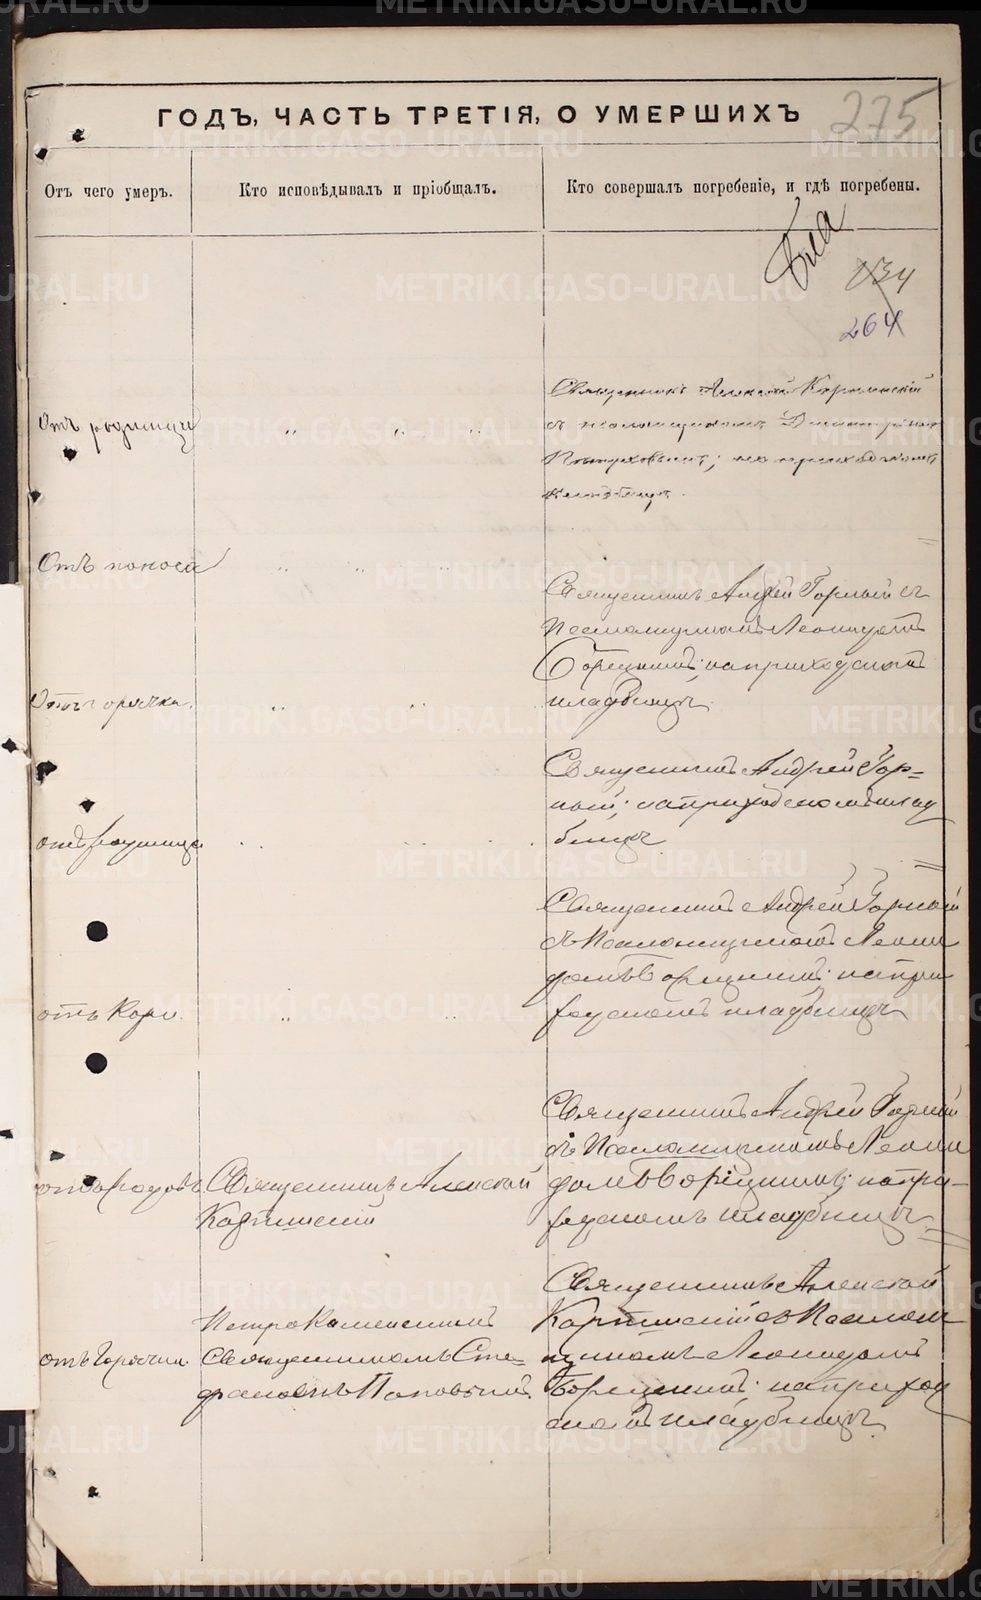 ГОДЪ, ЧАСТЬ ТРЕТІЯ, О УМЕРШИХЪ
275
Отъ чего умеръ.
Кто исповѣдывалъ и пріобщалъ.
Кто совершалъ погребеніе, и гдѣ погребены.
134
264
Отъ родимца
Священникъ Алексѣй
съ псаломщикомъ
на приходскомъ
кладбищѣ.
Отъ поноса
Священникъ Андрей Горный съ
Псаломщикомъ Леонидомъ
Борецкимъ; на приходскомъ
кладбищѣ.
Отъ горячки.
Священникъ Андрей Гор-
ный; на приходскомъ клад
бищѣ
отъ родимца
Священникъ Андрей Горный
съ Псаломщикомъ Леони
домъ Борецкимъ; на при
ходскомъ кладбищѣ
отъ Кори.
Священникъ Андрей Горный
съ Псаломщикомъ Леони
домъ Борецкимъ; на при-
ходскомъ кладбищѣ
отъ родовъ
Священникъ Алексѣй
Священникъ Алексѣй
съ Псалом
щикомъ Леонидомъ
Борецкимъ; на приход
скомъ кладбищѣ.
отъ Горячки
Петрокаменскимъ
Священникомъ Сте-
фаномъ Поповымъ.
METRIKI.GASO-URAL.RU